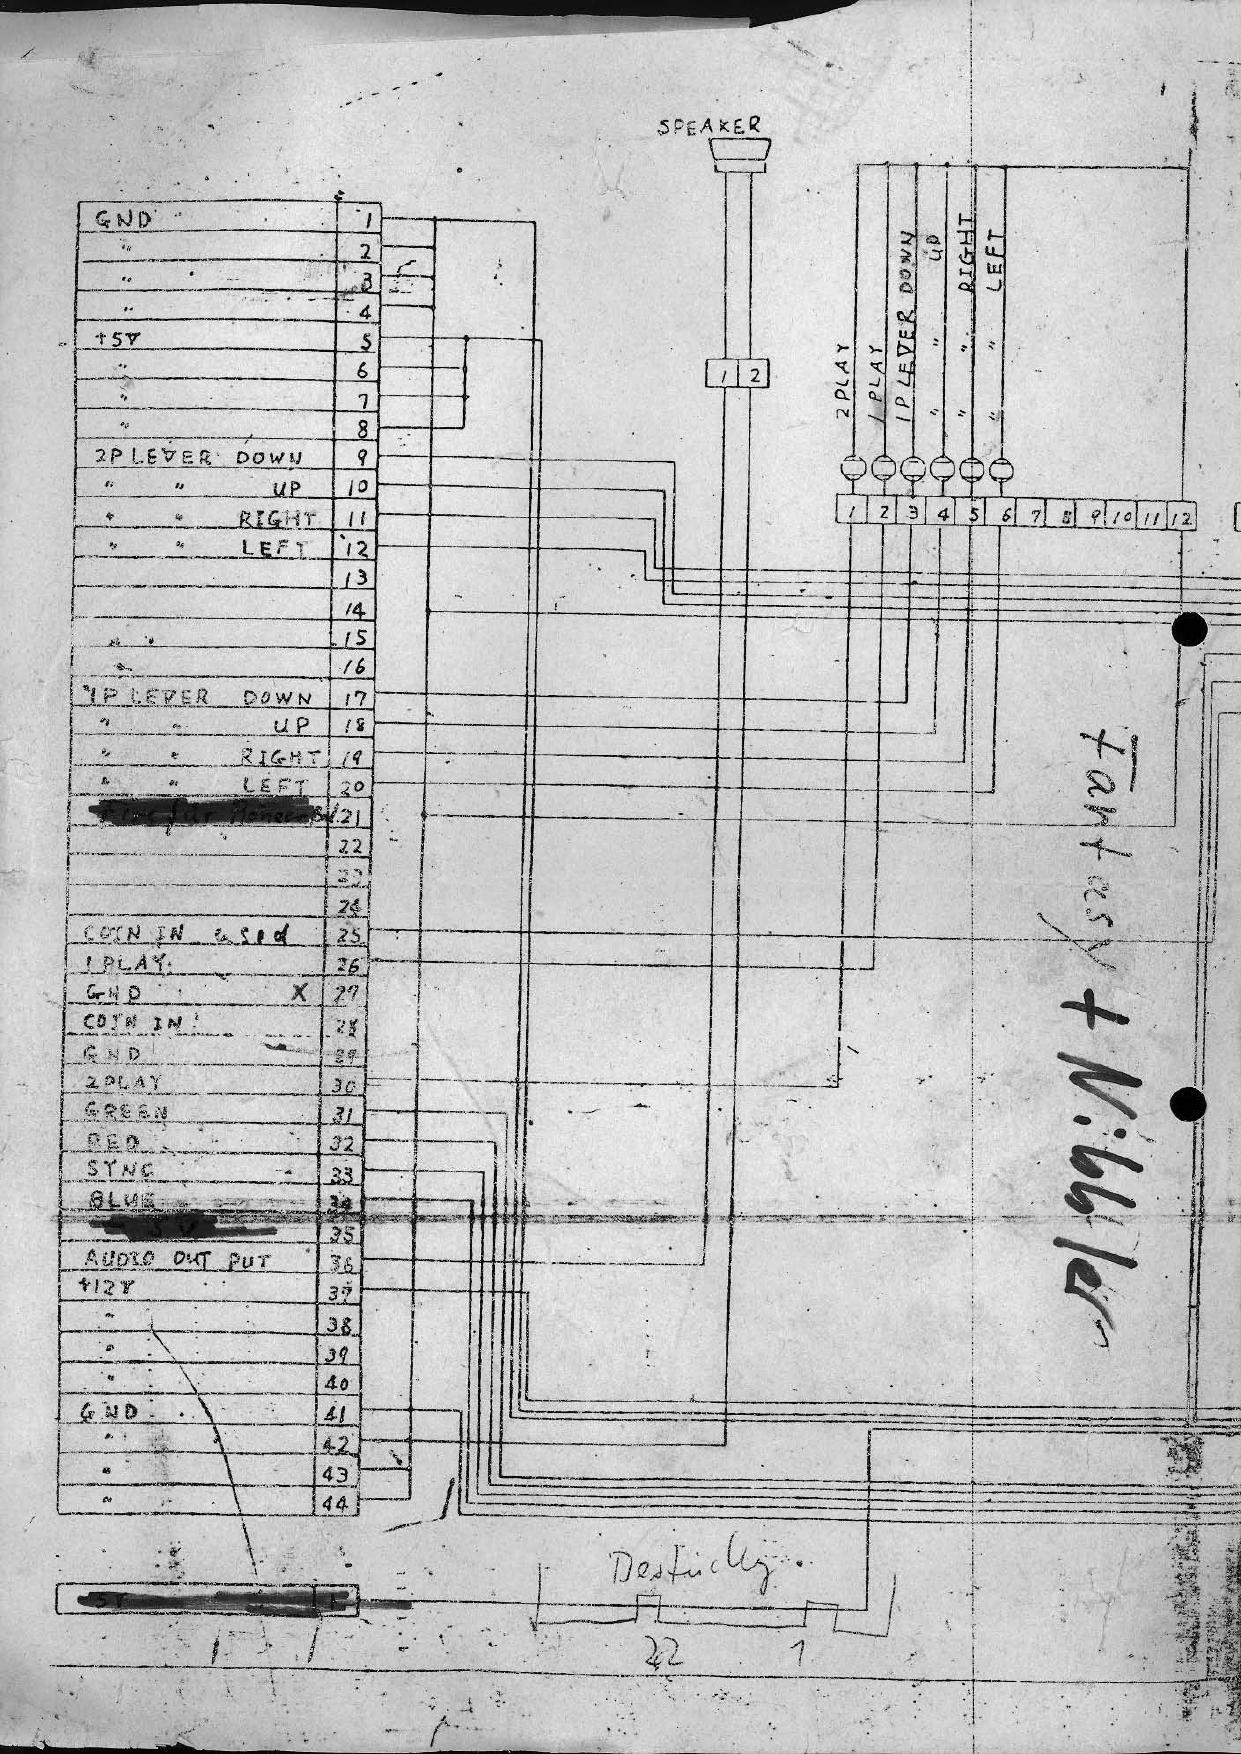 SPEAKER
GND 1
" 2
" 3
" 4
+5V 5
" 6
" 7
" 8
2P LEVER DOWN 9
" " UP 10
" " RIGHT 11
" " LEFT 12
13
14
" " 15
" 16
1P LEVER DOWN 17
" " UP 18
" " RIGHT 19
" " LEFT 20
21
22
23
24
COIN IN used 25
1 PLAY 26
GND X 27
COIN IN 28
GND 29
2PLAY 30
GREEN 31
RED 32
SYNC 33
BLUE 34
5V 35
AUDIO OUT PUT 36
+12V 37
" 38
" 39
" 40
GND 41
" 42
" 43
" 44
5V
1 2
2PLAY
1 PLAY
1P LEVER DOWN
" " UP
" " RIGHT
" " LEFT
1 2 3 4 5 6 7 8 9 10 11 12
Fantasy + Nibbler
22 1